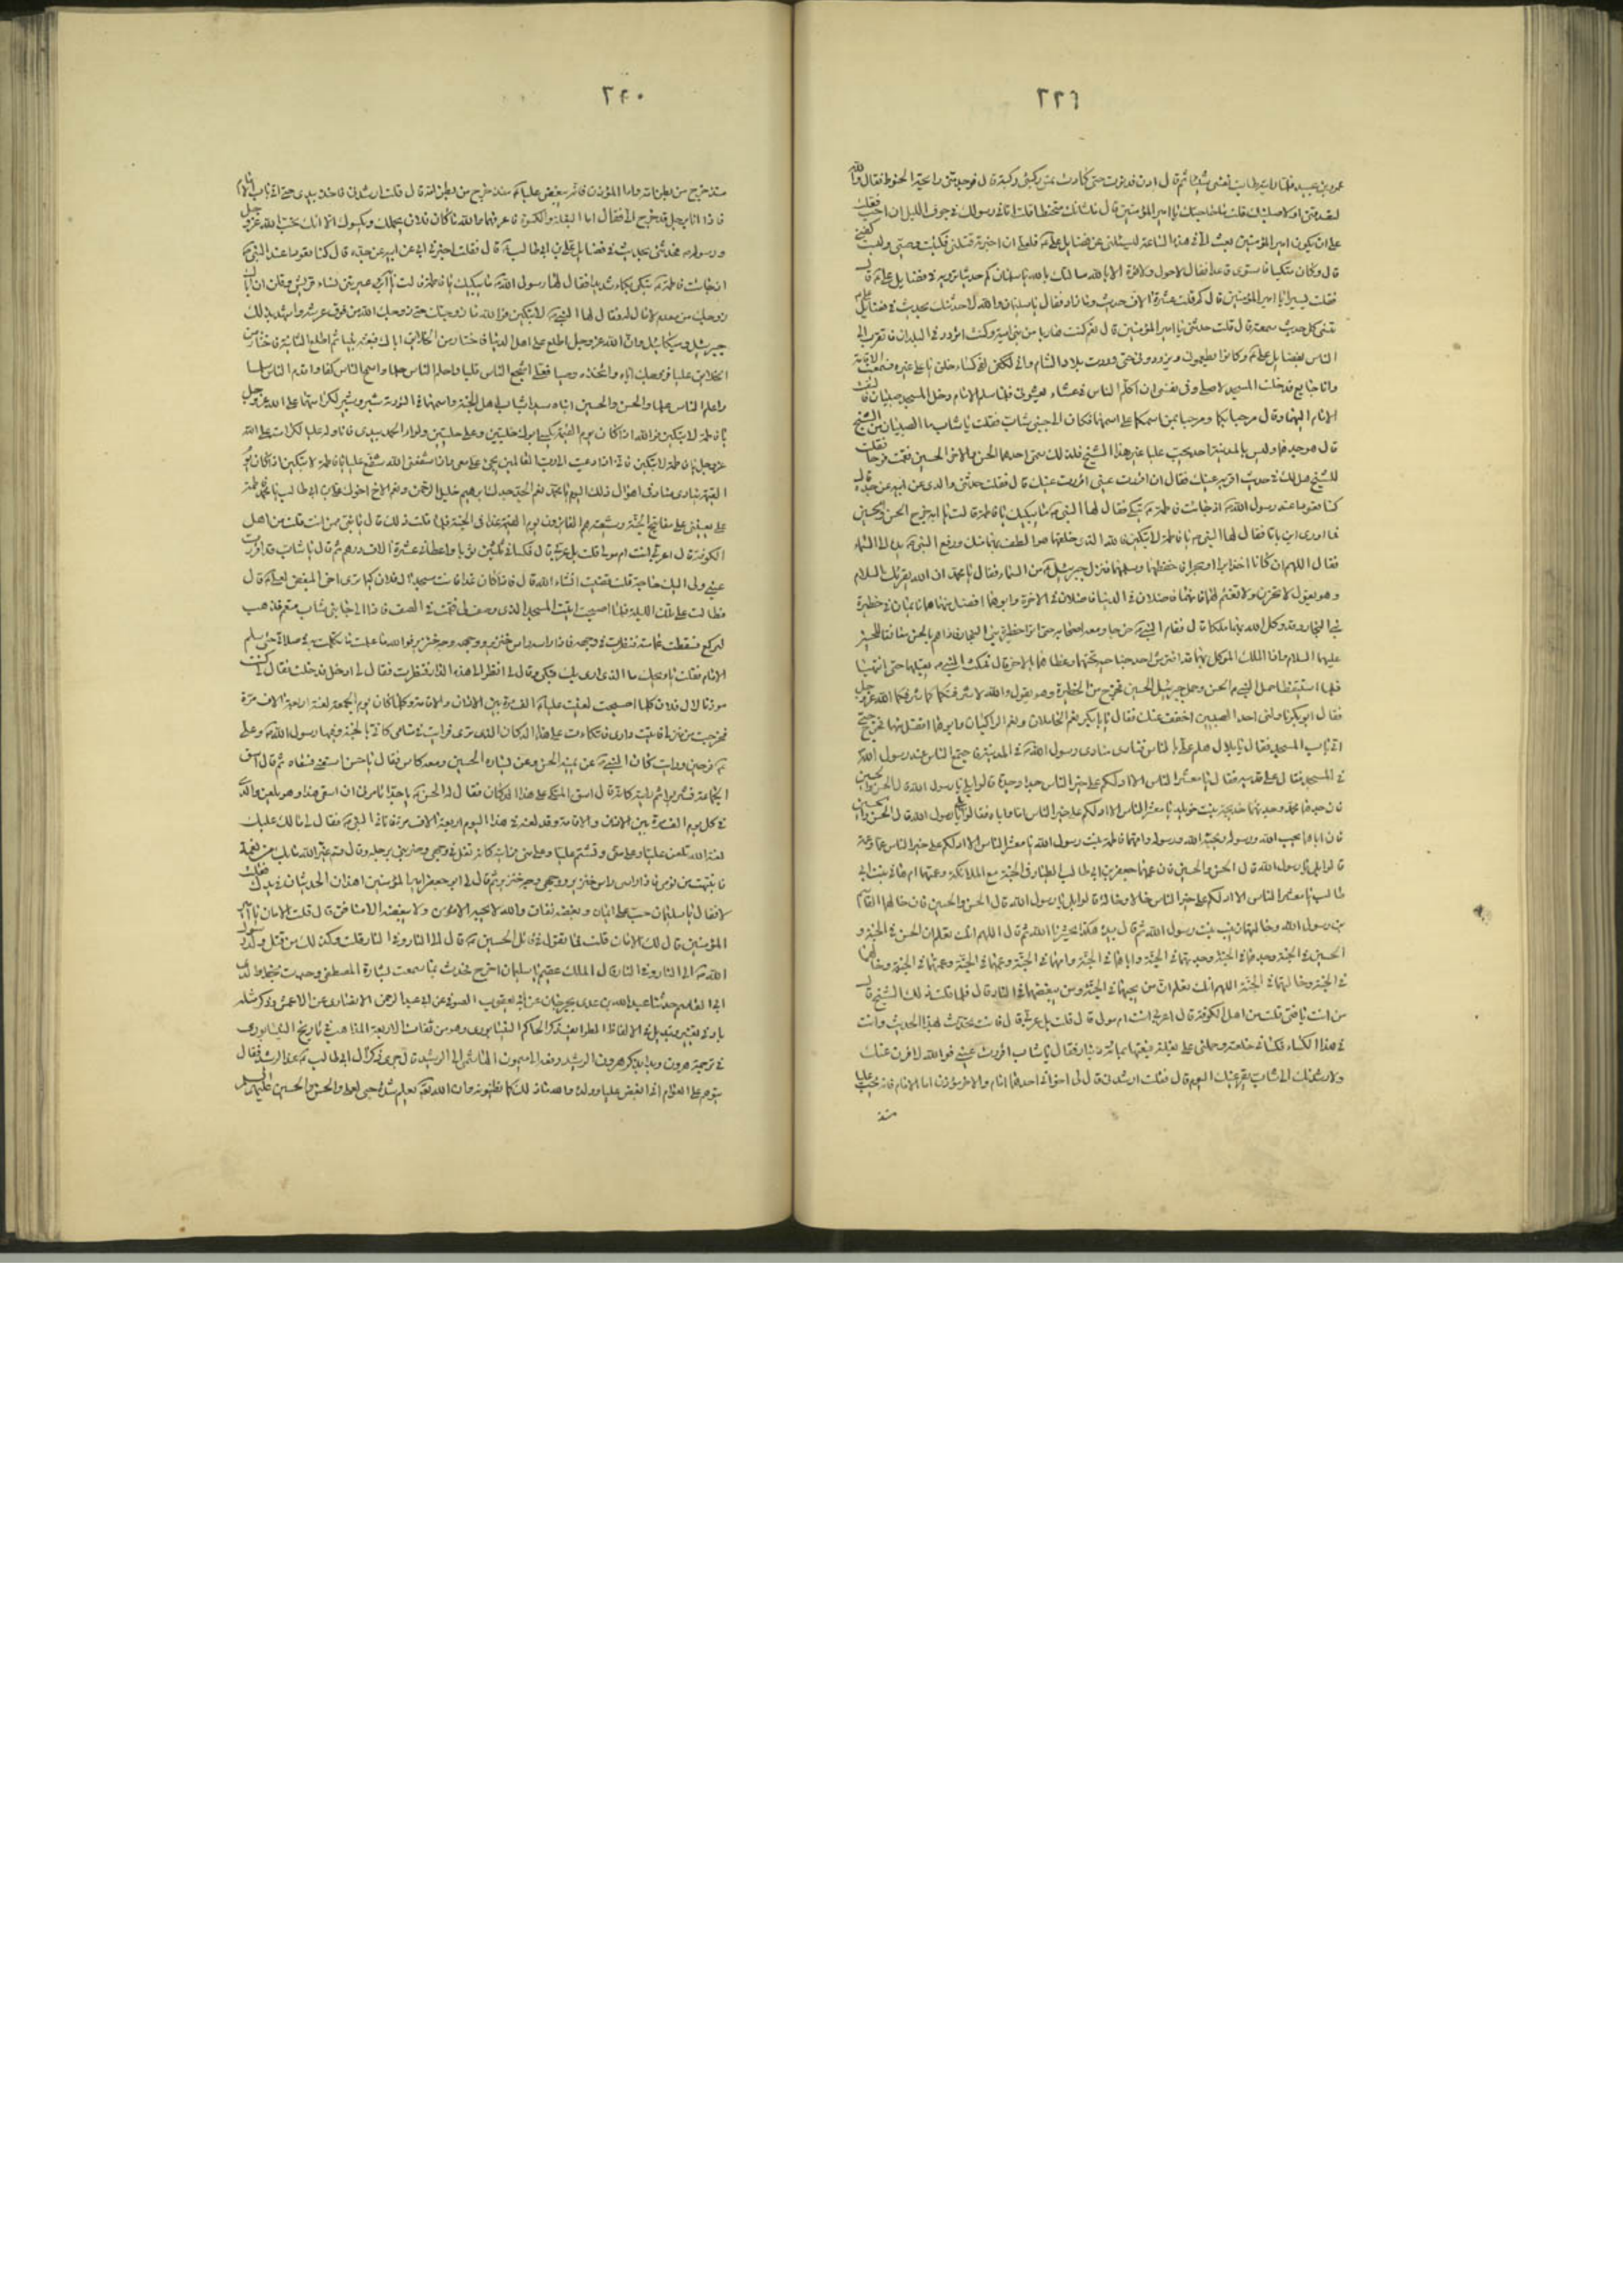 ٢٣٩
عمرو بن عبيد فلما رايته طابت نفسي شيئا ثم قال ادن فدنوت حتى كادت تمس ركبتي ركبته قال فوجد مني رايحة الحنوط فقال والله
لتصدقني او لاصلبنك قلت ما حاجتك يا امير المؤمنين قال ما شانك متحنطا قلت اتاني رسولك في جوف الليل ان اجب فقلت
على ان يكون امير المؤمنين بعث الي في هذه الساعة ليسئلني عن فضايل علي فلعلي ان اخبرته قتلني فكتبت وصيتي ولبست كفني
قال وكان متكيا فاستوى قاعدا فقال لا حول ولا قوة الا بالله سالتك بالله يا سليمان كم حديثا ترويه في فضايل علي قال
فقلت يسيرا يا امير المؤمنين قال كم قلت عشرة الاف حديث وما زاد فقال يا سليمان والله لاحدثنك بحديث في فضايل علي
تنسى كل حديث سمعته قال قلت حدثني يا امير المؤمنين قال نعم كنت هاربا من بني امية وكنت اتردد في البلدان فاتقرب الى
الناس بفضايل علي وكانوا يطعموني ويزودوني حتى وردت بلاد الشام واني لفي كساء خلق ما علي غيره فسمعت الاقامة
وانا جايع فدخلت المسجد لاصلي وفي نفسي ان اكلم الناس في عشاء يعشوني فلما سلم الامام دخل المسجد صبيان فالتفت
الامام اليهما وقال مرحبا بكما ومرحبا بمن اسمكما على اسمهما فكان الى جنبي شاب فقلت يا شاب ما الصبيان من الشيخ
قال هو جدهما وليس بالمدينة احد يحب عليا غير هذا الشيخ فلذلك سمى احدهما الحسن والاخر الحسين فقمت فرحا فقلت
للشيخ هل لك في حديث اقر به عينك فقال ان اقررت عيني اقررت عينك قال فقلت حدثني والدي عن ابيه عن جده قال
كنا قعودا عند رسول الله اذ جائت فاطمة تبكي فقال لها النبي ما يبكيك يا فاطمة قالت يا ابه خرج الحسن والحسين
فما ادري اين باتا فقال لها النبي يا فاطمة لا تبكين فالله الذي خلقهما هو الطف بهما منك ورفع النبي يده الى السماء
فقال اللهم ان كانا اخذا برا او بحرا فاحفظهما وسلمهما فنزل جبرئيل من السماء فقال يا محمد ان الله يقرئك السلام
وهو يقول لا تحزن ولا تغتم لهما فانهما فاضلان في الدنيا فاضلان في الاخرة وابوهما افضل منهما هما نايمان في حظيرة
بني النجار وقد وكل الله بهما ملكا قال فقام النبي فرحا ومعه اصحابه حتى اتوا حظيرة بني النجار فاذا هم بالحسن معانقا للحسين
عليهما السلام واذا الملك الموكل بهما قد افترش احد جناحيه تحتهما وغطاهما بالاخر قال فمكث النبي يقبلهما حتى انتبها
فلما استيقظا حمل النبي الحسن وحمل جبرئيل الحسين فخرج من الحظيرة وهو يقول والله لاشرفنكما كما شرفكما الله عز وجل
فقال ابو بكر ناولني احد الصبيين اخفف عنك فقال يا ابا بكر نعم الحاملان ونعم الراكبان وابوهما افضل منهما فخرج حتى
اتى باب المسجد فقال يا بلال هلم علي بالناس فنادى منادي رسول الله في المدينة فاجتمع الناس عند رسول الله
في المسجد فقام على قدميه فقال يا معشر الناس الا ادلكم على خير الناس جدا وجدة قالوا بلى يا رسول الله قال الحسن والحسين
فان جدهما محمد وجدتهما خديجة بنت خويلد يا معشر الناس الا ادلكم على خير الناس ابا واما فقالوا بلى يا رسول الله قال الحسن والحسين
فان اباهما يحب الله ورسوله ويحبه الله ورسوله وامهما فاطمة بنت رسول الله يا معشر الناس الا ادلكم على خير الناس عما وعمة
قالوا بلى يا رسول الله قال الحسن والحسين فان عمهما جعفر بن ابي طالب الطيار في الجنة مع الملائكة وعمتهما ام هاني بنت ابي
طالب يا معشر الناس الا ادلكم على خير الناس خالا وخالة قالوا بلى يا رسول الله قال الحسن والحسين فان خالهما القاسم
بن رسول الله وخالتهما زينب بنت رسول الله ثم قال بيده هكذا يحشرنا الله ثم قال اللهم انك تعلم ان الحسن في الجنة و
الحسين في الجنة وجدهما في الجنة وجدتهما في الجنة واباهما في الجنة وامهما في الجنة وعمهما في الجنة وعمتهما في الجنة وخالهما
في الجنة وخالتهما في الجنة اللهم انك تعلم ان من يحبهما في الجنة ومن يبغضهما في النار قال فلما قلت ذلك للشيخ قال
من انت يا فتى قلت من اهل الكوفة قال اعربي انت ام مولى قال قلت بل عربي قال فانت تحدث بهذا الحديث وانت
في هذا الكساء فكساني خلعته وحملني على بغلته فبعتها بمائة دينار فقال يا شاب اقررت عيني فوالله لاقرن عينك
ولارشدنك الى شاب يقر عينك اليوم قال فقلت ارشدني قال لي اخوان احدهما امام والاخر مؤذن اما الامام فانه يحب عليا
منذ
٢٤٠
منذ خرج من بطن امه واما المؤذن فانه يبغض عليا منذ خرج من بطن امه قال قلت ارشدني فاخذ بيدي حتى اتى باب الامام
فاذا انا برجل قد خرج الي فقال اما البغلة والكسوة فاعرفهما والله ما كان فلان يحملك ويكسوك الا انك تحب الله عز وجل
ورسوله فحدثني بحديث في فضايل علي بن ابي طالب قال فقلت اخبرني ابي عن ابيه عن جده قال كنا قعودا عند النبي
اذ جائت فاطمة تبكي بكاء شديدا فقال لها رسول الله ما يبكيك يا فاطمة قالت يا ابه عيرتني نساء قريش وقلن ان اباك
زوجك من معدم لا مال له فقال لها النبي لا تبكين فوالله ما زوجتك حتى زوجك الله من فوق عرشه واشهد بذلك
جبرئيل وميكائيل وان الله عز وجل اطلع على اهل الدنيا فاختار من الخلايق اباك فبعثه نبيا ثم اطلع الثانية فاختار من
الخلايق عليا فزوجك اياه واتخذه وصيا فعلي اشجع الناس قلبا واحلم الناس حلما واسمح الناس كفا واقدم الناس سلما
واعلم الناس علما والحسن والحسين ابناه سيدا شباب اهل الجنة واسمهما في التورية شبر وشبير لكرامتهما على الله عز وجل
يا فاطمة لا تبكين فوالله اذا كان يوم القيمة يكسى ابوك حلتين وعلي حلتين ولواء الحمد بيدي فاناوله عليا لكرامته على الله
عز وجل يا فاطمة لا تبكين فاني اذا دعيت الى رب العالمين يجيئ علي معي واذا شفعني الله شفع عليا يا فاطمة لا تبكين اذا كان يوم
القيمة ينادي مناد في اهوال ذلك اليوم يا محمد نعم الجد جدك ابراهيم خليل الرحمن ونعم الاخ اخوك علي بن ابي طالب يا فاطمة
علي يعينني على مفاتيح الجنة وشيعته هم الفائزون يوم القيمة غدا في الجنة فلما قلت ذلك قال يا بني ممن انت قلت من اهل
الكوفة قال اعربي انت ام مولى قلت بل عربي قال فكساني ثلثين ثوبا واعطاني عشرة الاف درهم ثم قال يا شاب قد اقررت
عيني ولي اليك حاجة قلت قضيت انشاء الله قال فاذا كان غدا فائت مسجد آل فلان كيما ترى اخي المبغض لعلي قال
فطالت علي تلك الليلة فلما اصبحت اتيت المسجد الذي وصف لي فقمت في الصف فاذا الى جانبي شاب متعمم فذهب
ليركع فسقطت عمامته فنظرت في وجهه فاذا راسه راس خنزير ووجهه وجه خنزير فوالله ما علمت ما تكلمت به في صلاتي حتى سلم
الامام فقلت يا ويحك ما الذي ارى بك فبكى وقال لي انظر الى هذه الدار فنظرت فقال لي ادخل فدخلت فقال لي كنت
موذنا لال فلان كلما اصبحت لعنت عليا الف مرة بين الاذان والاقامة وكلما كان يوم الجمعة لعنته اربعة الاف مرة
فخرجت من منزلي فاتيت داري فاتكات على هذا الدكان الذي ترى فرايت في منامي كاني بالجنة وفيها رسول الله وعلي
فرحين ورايت كان النبي عن يمينه الحسن وعن يساره الحسين ومعه كاس فقال يا حسن اسقني فسقاه ثم قال اسق
الجماعة فشربوا ثم رايته كانه قال اسق المتكي على هذا الدكان فقال له الحسن يا جد اتامرني ان اسقي هذا وهو يلعن والدي
في كل يوم الف مرة بين الاذان والاقامة وقد لعنه في هذا اليوم اربعة الاف مرة فاتاني النبي فقال لي مالك عليك
لعنة الله تلعن عليا وعلي مني وتشتم عليا وعلي مني فرايته كانه تفل في وجهي وضربني برجله وقال قم غير الله ما بك من نعمة
فانتبهت من نومي فاذا راسي راس خنزير ووجهي وجه خنزير ثم قال لي ابو جعفر امير المؤمنين اهذان الحديثان في يدك فقلت
لا فقال يا سليمان حب علي ايمان وبغضه نفاق والله لا يحبه الا مؤمن ولا يبغضه الا منافق قال قلت الامان يا امير
المؤمنين قال لك الامان قلت فما تقول في قاتل الحسين قال الى النار وفي النار قلت وكذلك من قتل ولد رسول
الله الى النار وفي النار قال الملك عقيم يا سليمان اخرج فحدث بما سمعت بشارة المصطفى وجدت بخط والدي
ابي القاسم حدثنا عبد الله بن عدي بجرجان عن ابي يعقوب الصوفي عن ابي عبد الرحمن الانصاري عن الاعمش وذكر مثله
بادنى تغيير وتبديل في الالفاظ الطرايف ذكر الحاكم النيسابوري وهو من ثقات الاربعة المذاهب في تاريخ النيسابوري
في ترجمة هرون وبدا بذكر هرون الرشيد رفعه الى ميمون الهاشمي الى الرشيد قال جرى ذكر آل ابي طالب عند الرشيد فقال
يتوهم علي العوام اني ابغض عليا وولده والله ما ذلك كما يظنونه وان الله تعالى يعلم شدة حبي لعلي والحسن والحسين عليهم السلام